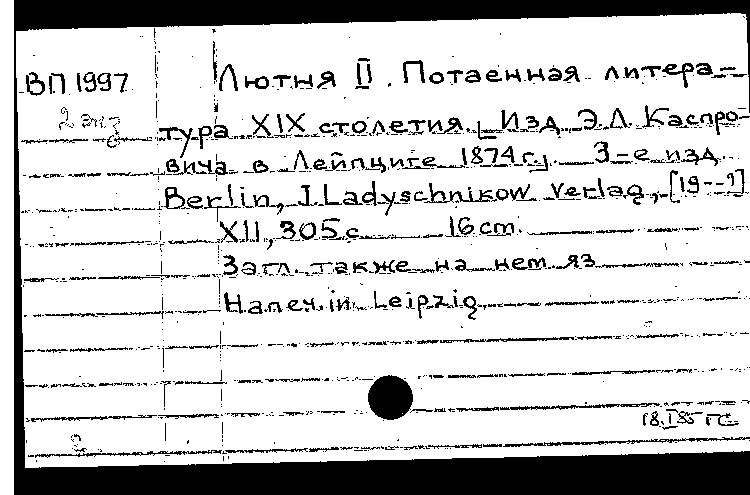 ВП 1997
2 экз
Лютня II. Потаенная литера-
тура XIX столетия. [Изд Э.Л. Каспро-
вича в Лейпциге 1874 г.]. 3-е изд.
Berlin, J. Ladyschnikow Verlag, [19--?]
XII, 305 с 16 cm.
Загл. также на нем яз
Напеч. in Leipzig.
18.I 85 ГС
2